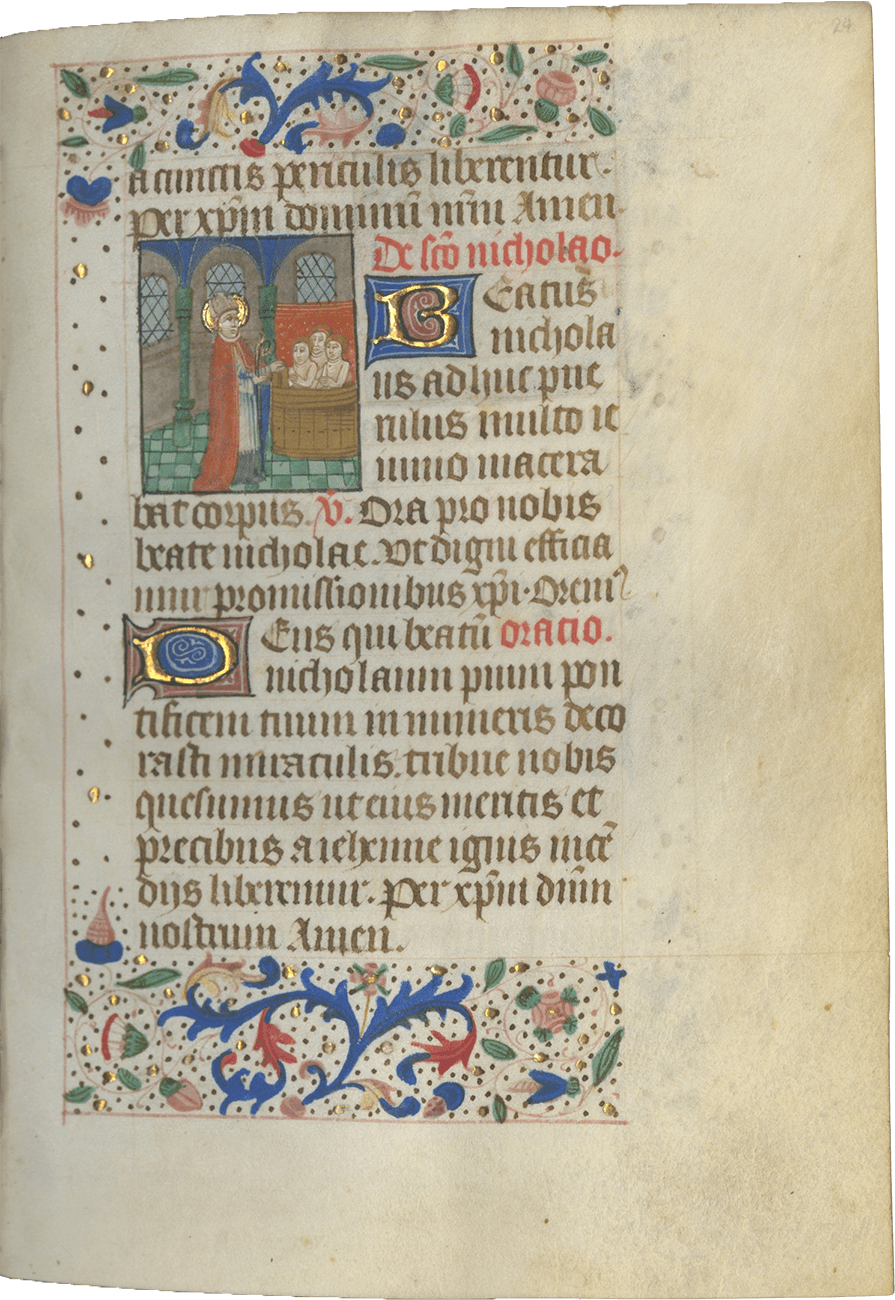 24
a cunctis periculis liberentur.
Per xp̄m dominū nr̄m Amen.
De sc̄o nicholao.
Beatus
nichola
us adhuc pue
rulus multo ie
iunio macera
bat corpus. V̄. Ora pro nobis
beate nicholae. Ut digni efficia
mur promissionibus xp̄i. Orem᷒
Deus qui beatū oracio.
nicholaum pium pon
tificem tuum innumeris deco
rasti miraculis. tribue nobis
quesumus ut eius meritis et
precibus a iehenne ignis incē
dijs liberemur. Per xp̄m dn̄m
nostrum Amen.